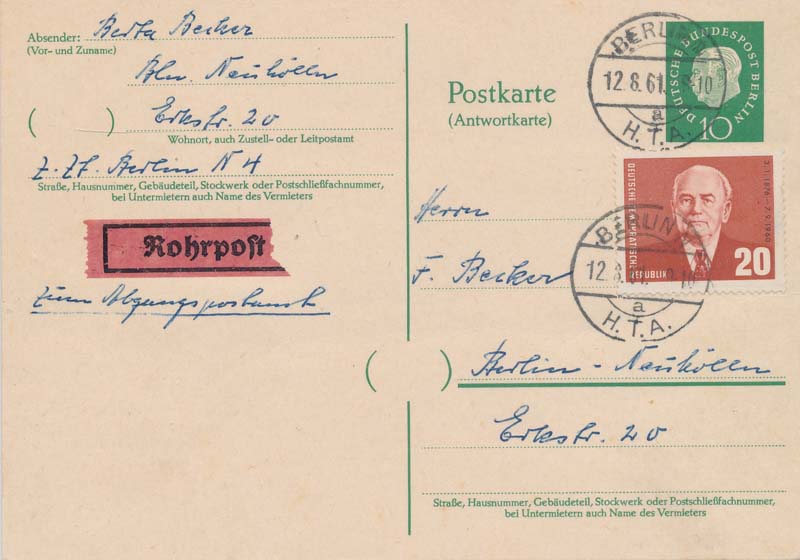 Absender: Berta Becker
(Vor- und Zuname)
Bln. Neukölln
Erkstr. 20
Wohnort, auch Zustell- oder Leitpostamt
z. Zt. Berlin N 4
Straße, Hausnummer, Gebäudeteil, Stockwerk oder Postschließfachnummer,
bei Untermietern auch Name des Vermieters
Rohrpost
zum Abgangspostamt
Postkarte
(Antwortkarte)
DEUTSCHE BUNDESPOST BERLIN
10
BERLIN
12.8.61
10
a
H.T.A.
3.1.1876-7.9.1960
DEUTSCHE DEMOKRATISCHE
REPUBLIK
20
BERLIN
12.8.61
10
a
H.T.A.
Herrn
F. Becker
Berlin-Neukölln
Erkstr. 20
Straße, Hausnummer, Gebäudeteil, Stockwerk oder Postschließfachnummer,
bei Untermietern auch Name des Vermieters